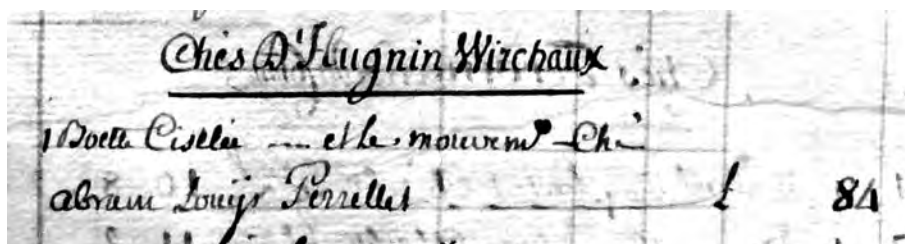 Chès D'Hugnin Wirchaux
1 Boette Ciselée --- et le mouvemt Chè
abram Louijs Perrellet L 84